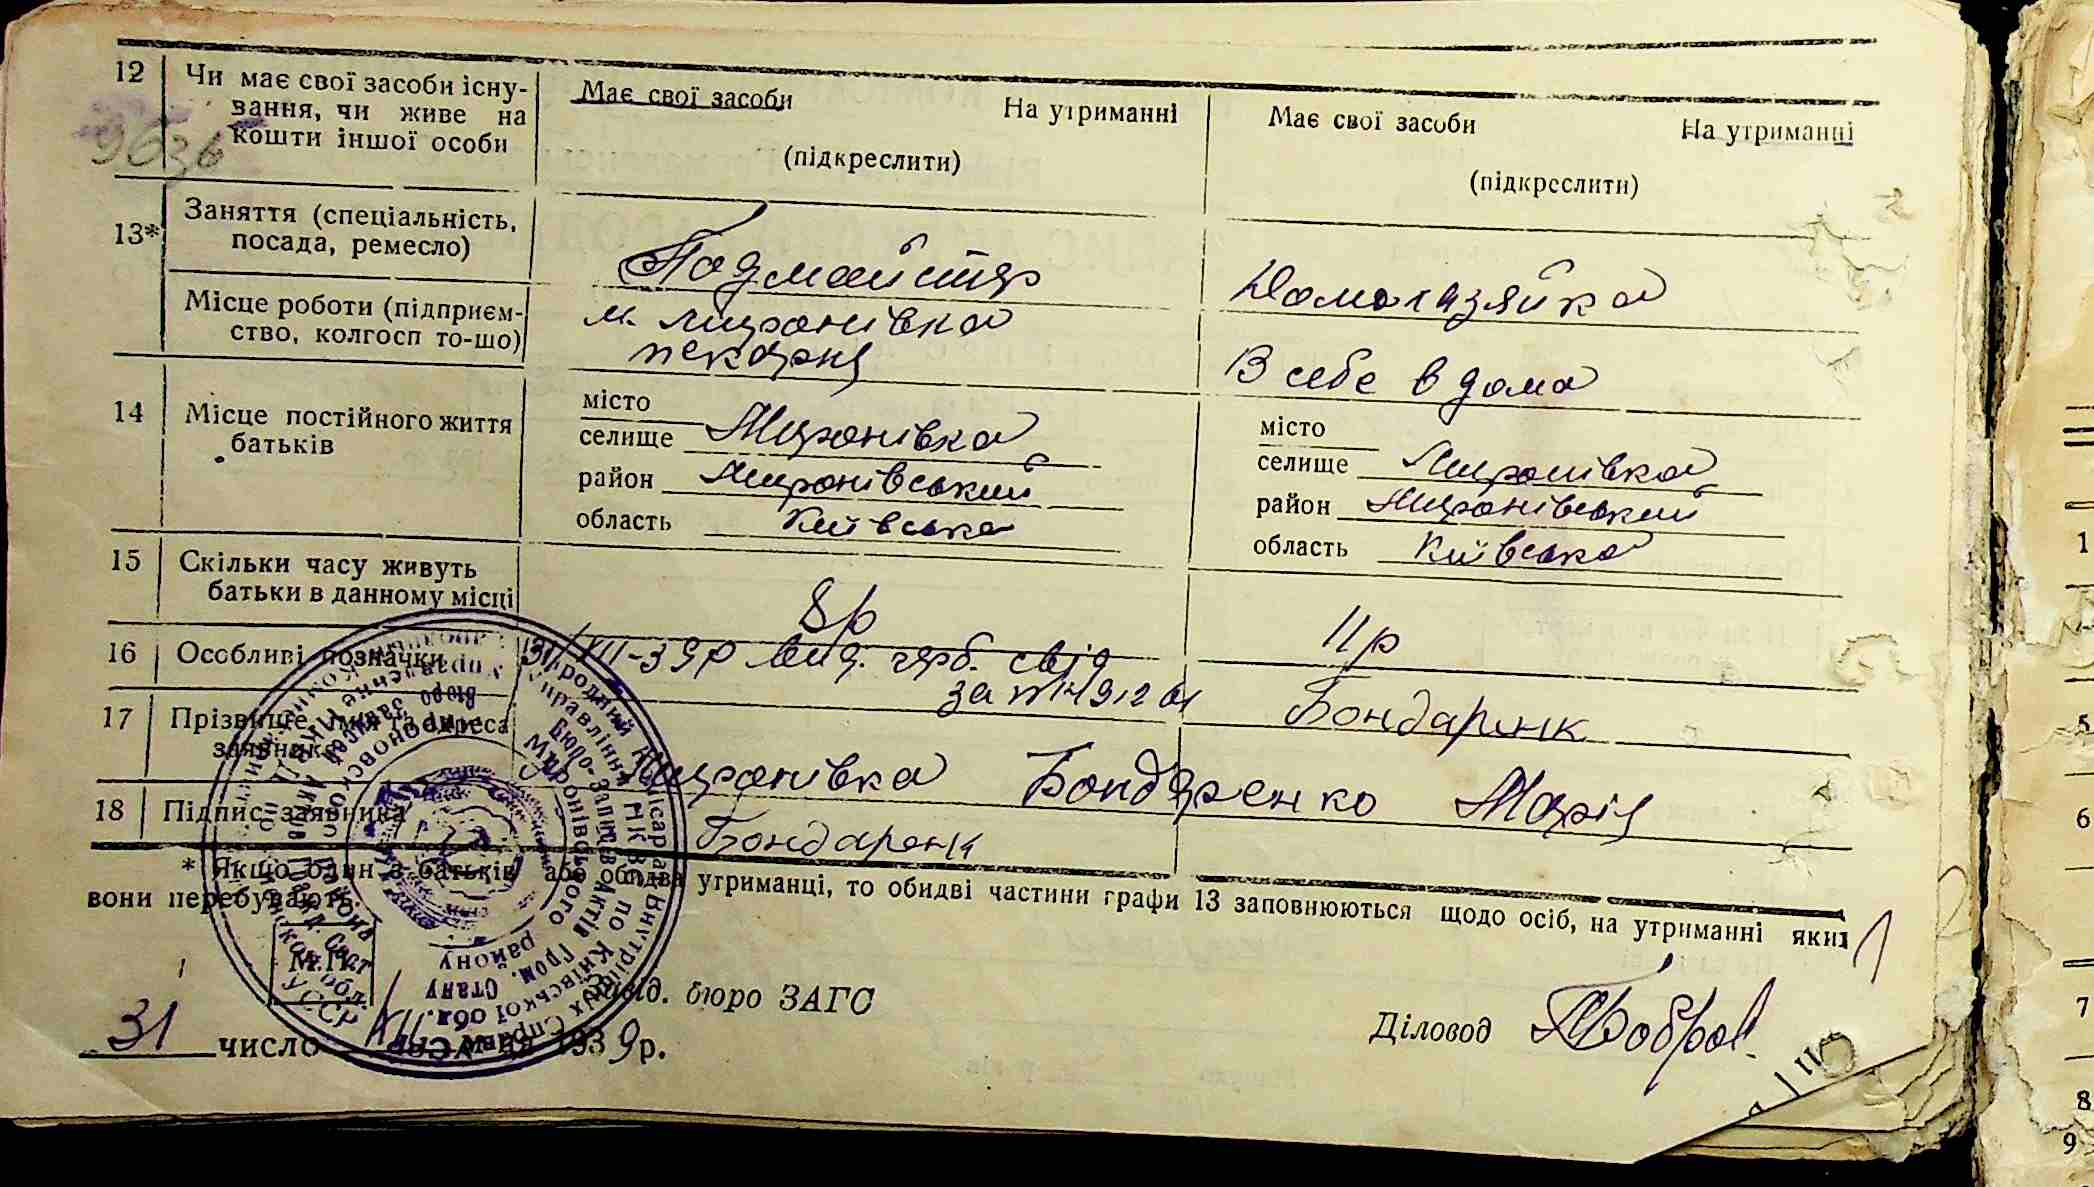 12 Чи має свої засоби існу- Має свої засоби На утриманні Має свої засоби На утриманці
вання, чи живе на
кошти іншої особи (підкреслити) (підкреслити)
963в
13* Заняття (спеціальність, посада, ремесло) Подмайстер Домохазяйка
Місце роботи (підприєм- м. Миронівка
ство, колгосп то-що) пекарня В себе в дома
14 Місце постійного життя батьків
місто місто
селище Миронівка селище Миронівка
район Миронівський район Миронівський
область Київська область Київська
15 Скільки часу живуть
батьки в данному місці 8р 11р
16 Особливі позначки 31/XII-39р Вид. герб. свід
за № Бондаренк
17 Прізвище, імя та адреса
заявника Миронівка Бондаренко Марія
18 Підпис заявника Бондаренк
* Якщо один з батьків або обидва утриманці, то обидві частини графи 13 заповнюються щодо осіб, на утриманні яких
вони перебувають.
М.П.
Завід. бюро ЗАГС
Діловод Бобров
31 число XII м-ця 1939р.
Народний Комісаріат Внутрішніх Справ УСРР
Управління НКВС по Київській обл.
Бюро Записів Актів Гром. Стану
Миронівського району
1
5
6
7
8
9